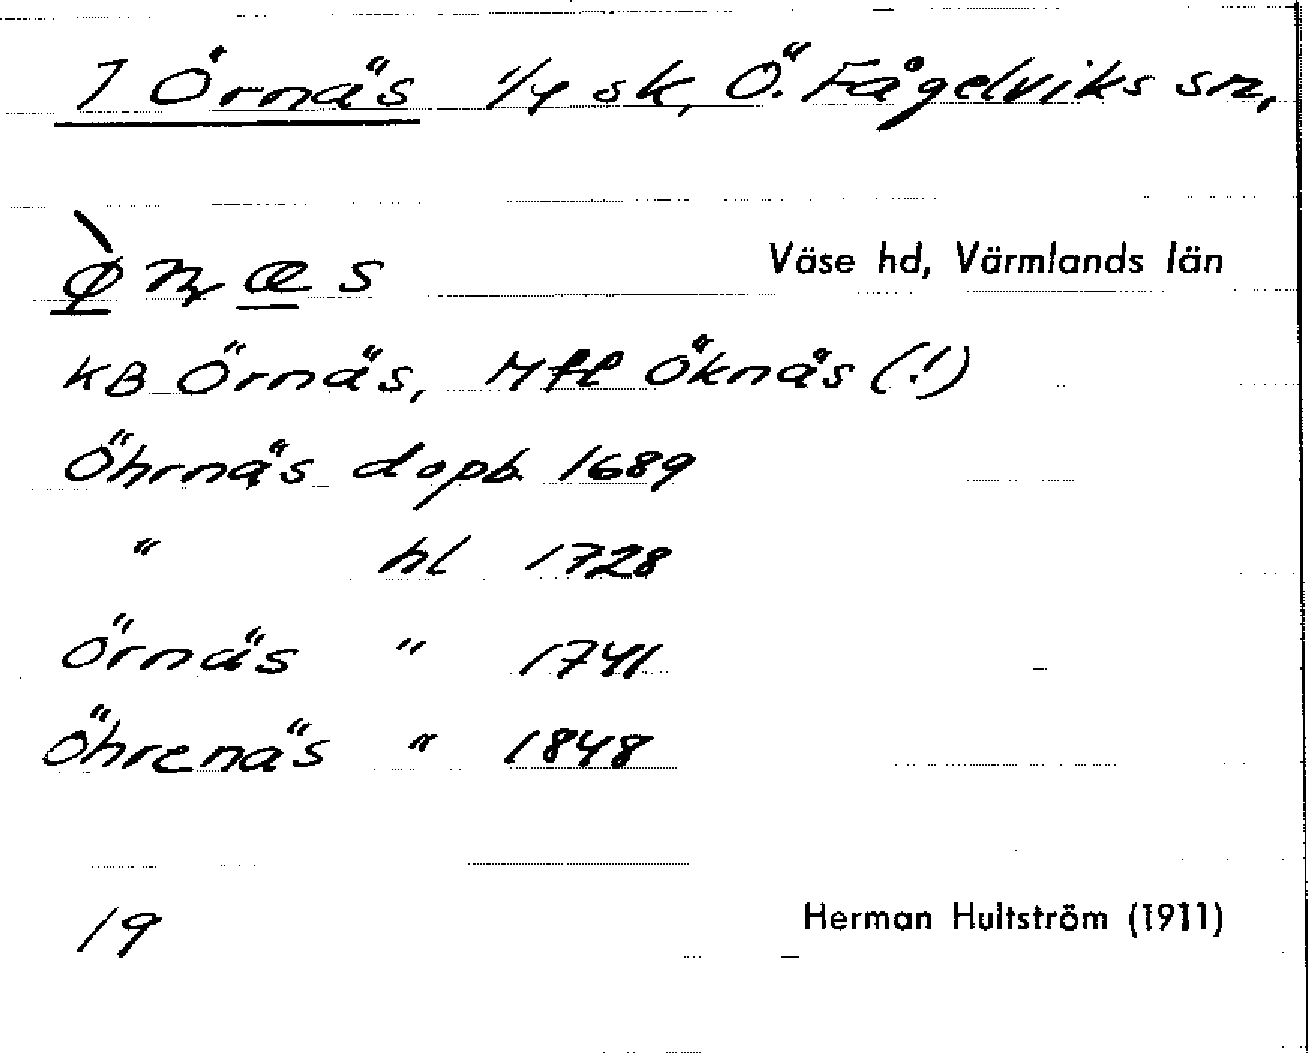 7 Örnäs 1/4 sk, Ö. Fågelviks sn,
Väse hd, Värmlands län
KB Örnäs, Mtl Öknäs (!)
Öhrnäs dopb. 1689
" hl 1728
Örnäs " 1741
Öhrenäs " 1848
19
Herman Hultström (1911)